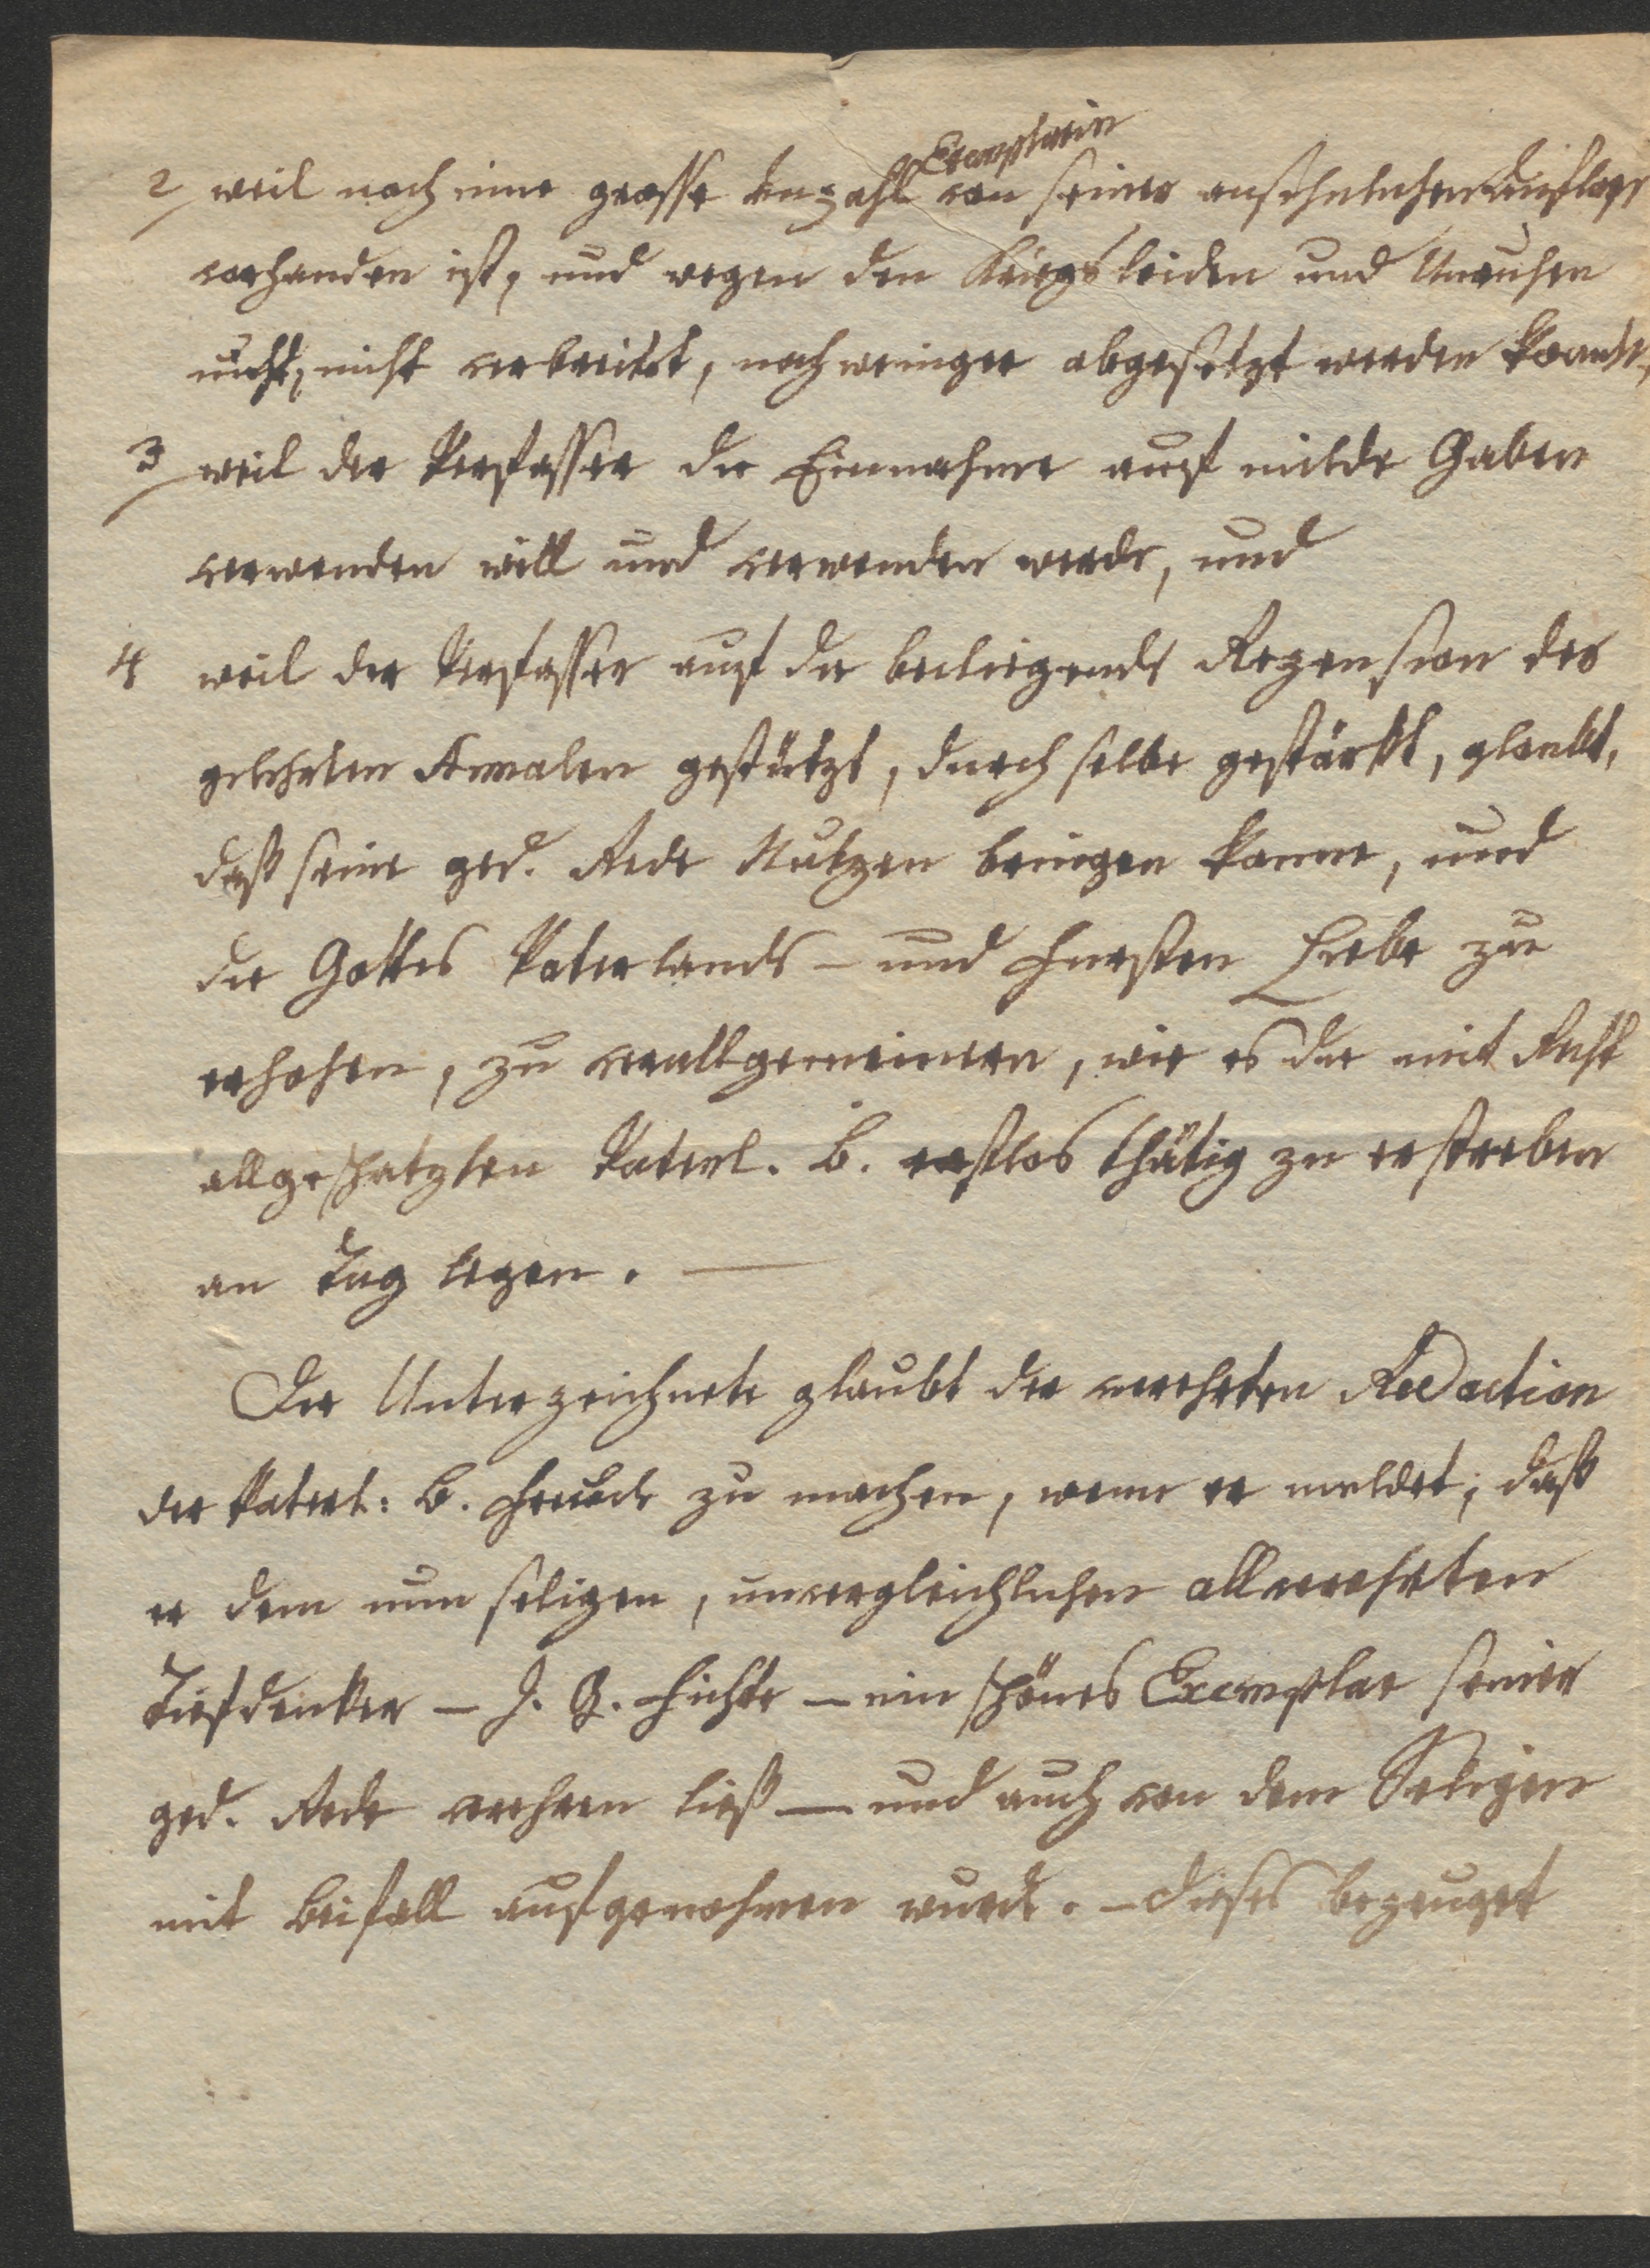 Exemplarin
2 weil noch eine grosse Anzahl von seiner ansehnlichen Auflage
vorhanden ist, und wegen den Kriegsleiden und Unruhen
nicht verbreitet, noch weniger abgesetzt werden konnte,
3 weil der Verfasser die Einnahme auf milde Gaben
verwenden will und verwenden werde, und
4 weil der Verfasser auf die beiliegende Rezension des
gelehrten Annalen gestützt, durch selbe gestärkt, glaubt,
daß seine ged. Rede Nutzen bringen könne, und
die Gottes Vaterlands – und Fürsten Liebe zu
erhohen, zu verallgemeinern, wie es die mit Recht
allgeschatzten Vaterl. B. rastlos thätig zu erstreben
an Tag legen. —
Der Unterzeichnete glaubt der verehrten Redaction
der Vaterl: B. Freude zu machen, wenn er meldet; daß
er dem nun seligen, unvergleichlichen allverehrten
Tiefdenker – J. G. Fichte – ein schönes Exemplar seiner
ged. Rede verehren ließ — und auch von dem Seligen
mit Beifall aufgenohmen wurde. – Dieses bezeuget